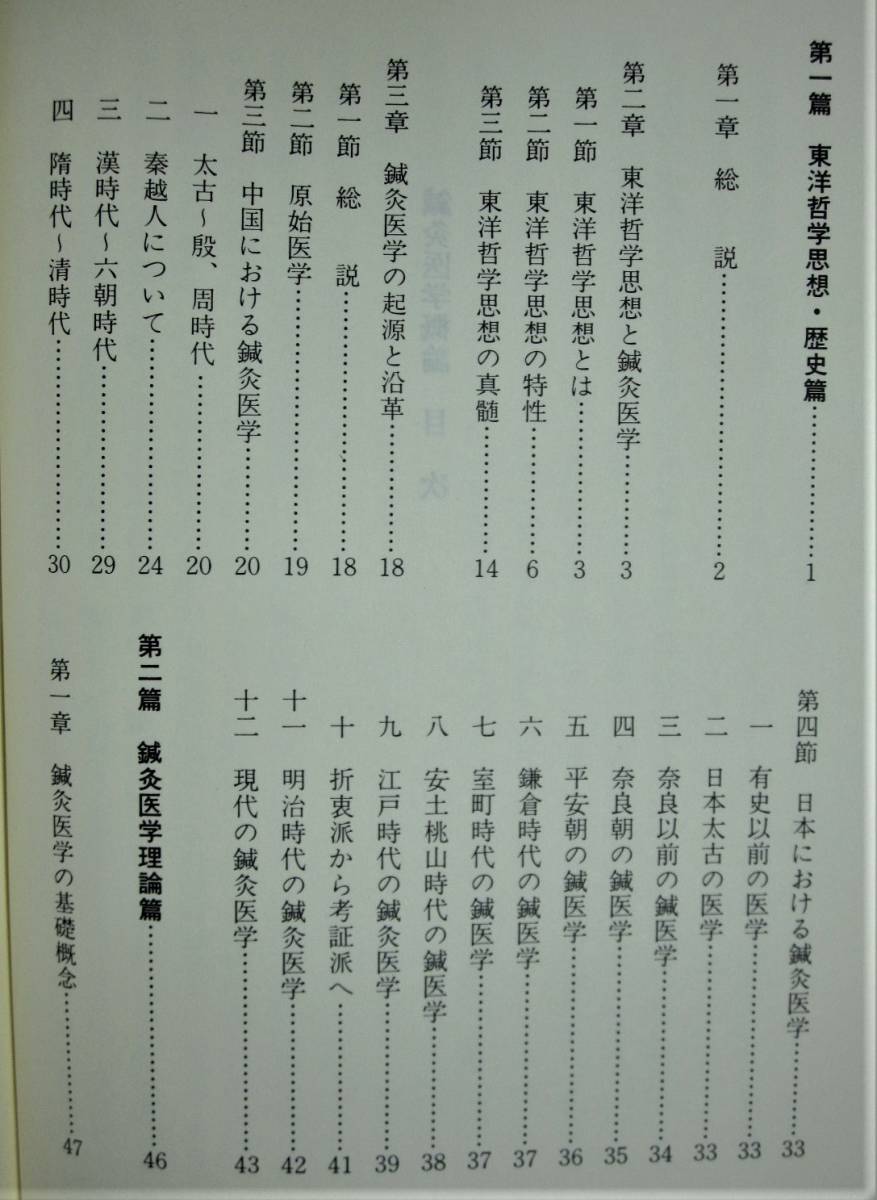 第一篇　東洋哲学思想・歴史篇……………………1
第一章　総　　説……………………2
第二章　東洋哲学思想と鍼灸医学……………3
第一節　東洋哲学思想とは……………………3
第二節　東洋哲学思想の特性…………………6
第三節　東洋哲学思想の真髄…………………14
第三章　鍼灸医学の起源と沿革…………………18
第一節　総　　説……………………18
第二節　原始医学……………………19
第三節　中国における鍼灸医学……………20
一　太古～殷、周時代……………………20
二　秦越人について……………………24
三　漢時代～六朝時代……………………29
四　隋時代～清時代……………………30
第四節　日本における鍼灸医学……………33
一　有史以前の医学……………………33
二　日本太古の医学……………………33
三　奈良以前の鍼医学……………………34
四　奈良朝の鍼医学……………………35
五　平安朝の鍼医学……………………36
六　鎌倉時代の鍼医学……………………37
七　室町時代の鍼医学……………………37
八　安土桃山時代の鍼医学……………38
九　江戸時代の鍼灸医学……………………39
十　折衷派から考証派へ……………………41
十一　明治時代の鍼灸医学……………………42
十二　現代の鍼灸医学……………………43
第二篇　鍼灸医学理論篇……………………46
第一章　鍼灸医学の基礎概念……………………47
鍼灸医学概論　目　次